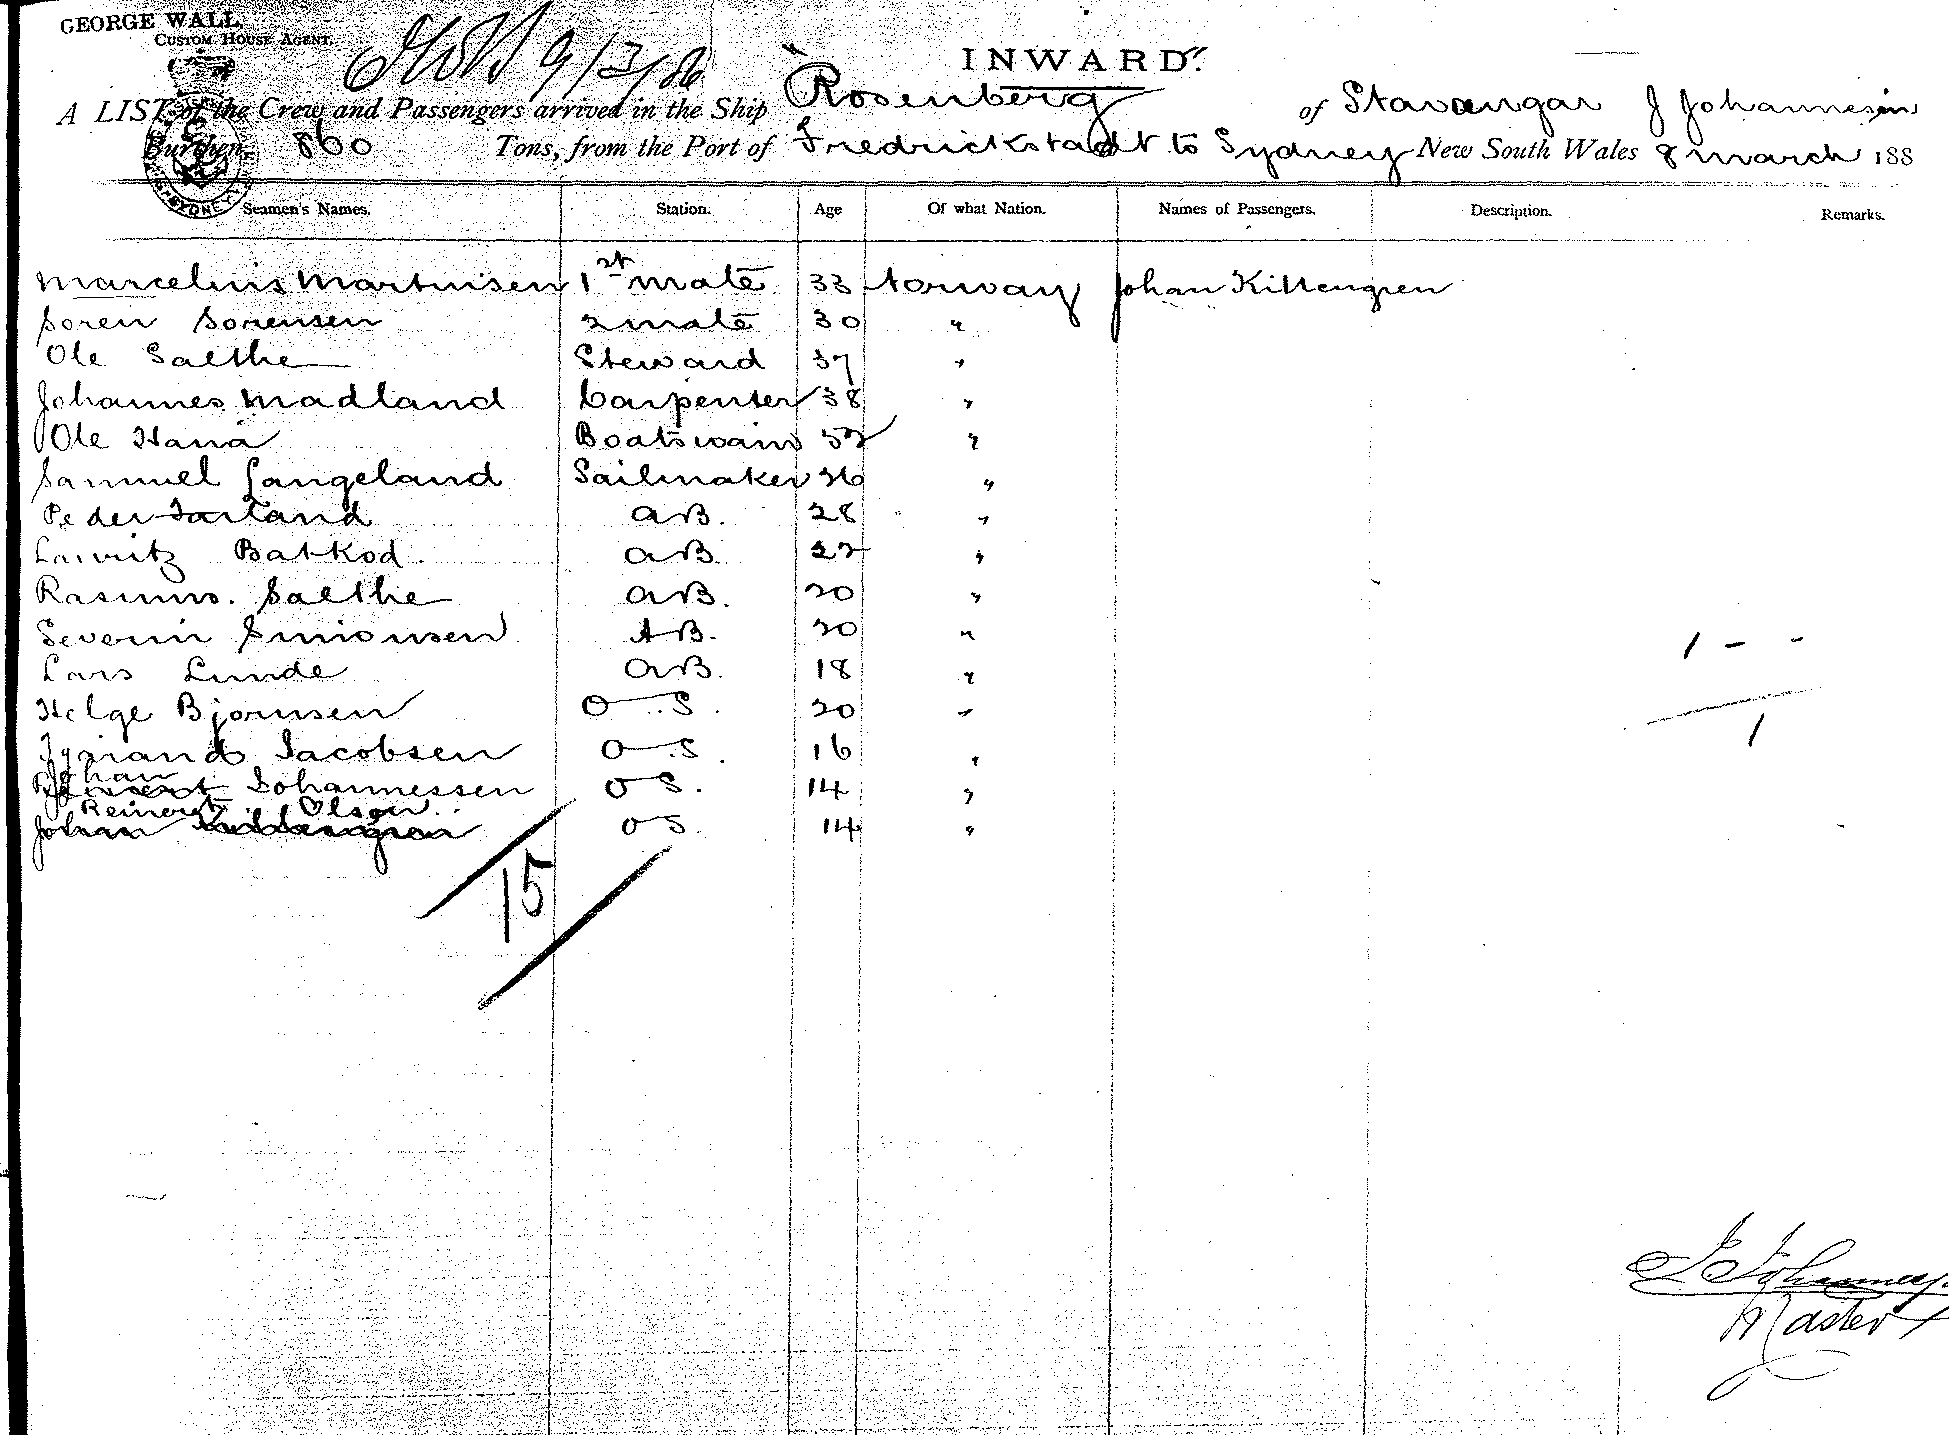 GEORGE WALL,
CUSTOM HOUSE AGENT.
9/3/86
INWARD.
A LIST of the Crew and Passengers arrived in the Ship Rosenberg of Stavangar J Johannesen
Burthen 860 Tons, from the Port of Fredrickstadt to Sydney New South Wales 8 March 188
SYDNEY
Seamen's Names. Station. Age Of what Nation. Names of Passengers. Description. Remarks.
Marcelius Martinisen 1st mate 33 Norway Johan Kittengren
Soren Sorensen 2 mate 30 "
Ole Saethe Steward 37 "
Johannes Madland Carpenter 38 "
Ole Hana Boatswain 52 "
Samuel Langeland Sailmaker 26 "
Peder Tarland AB. 28 "
Lauritz Batkod AB 22 "
Rasmus. Saethe AB. 20 "
Severin Simonsen AB. 20 "
Lars Lunde AB. 18 "
Helge Bjornsen O.S. 20 "
Jacobsen O.S. 16 "
Johan Johannessen OS. 14 "
Reinert Olsen
Johan OS. 14 "
1 - -
1
15
J Johannes
Master